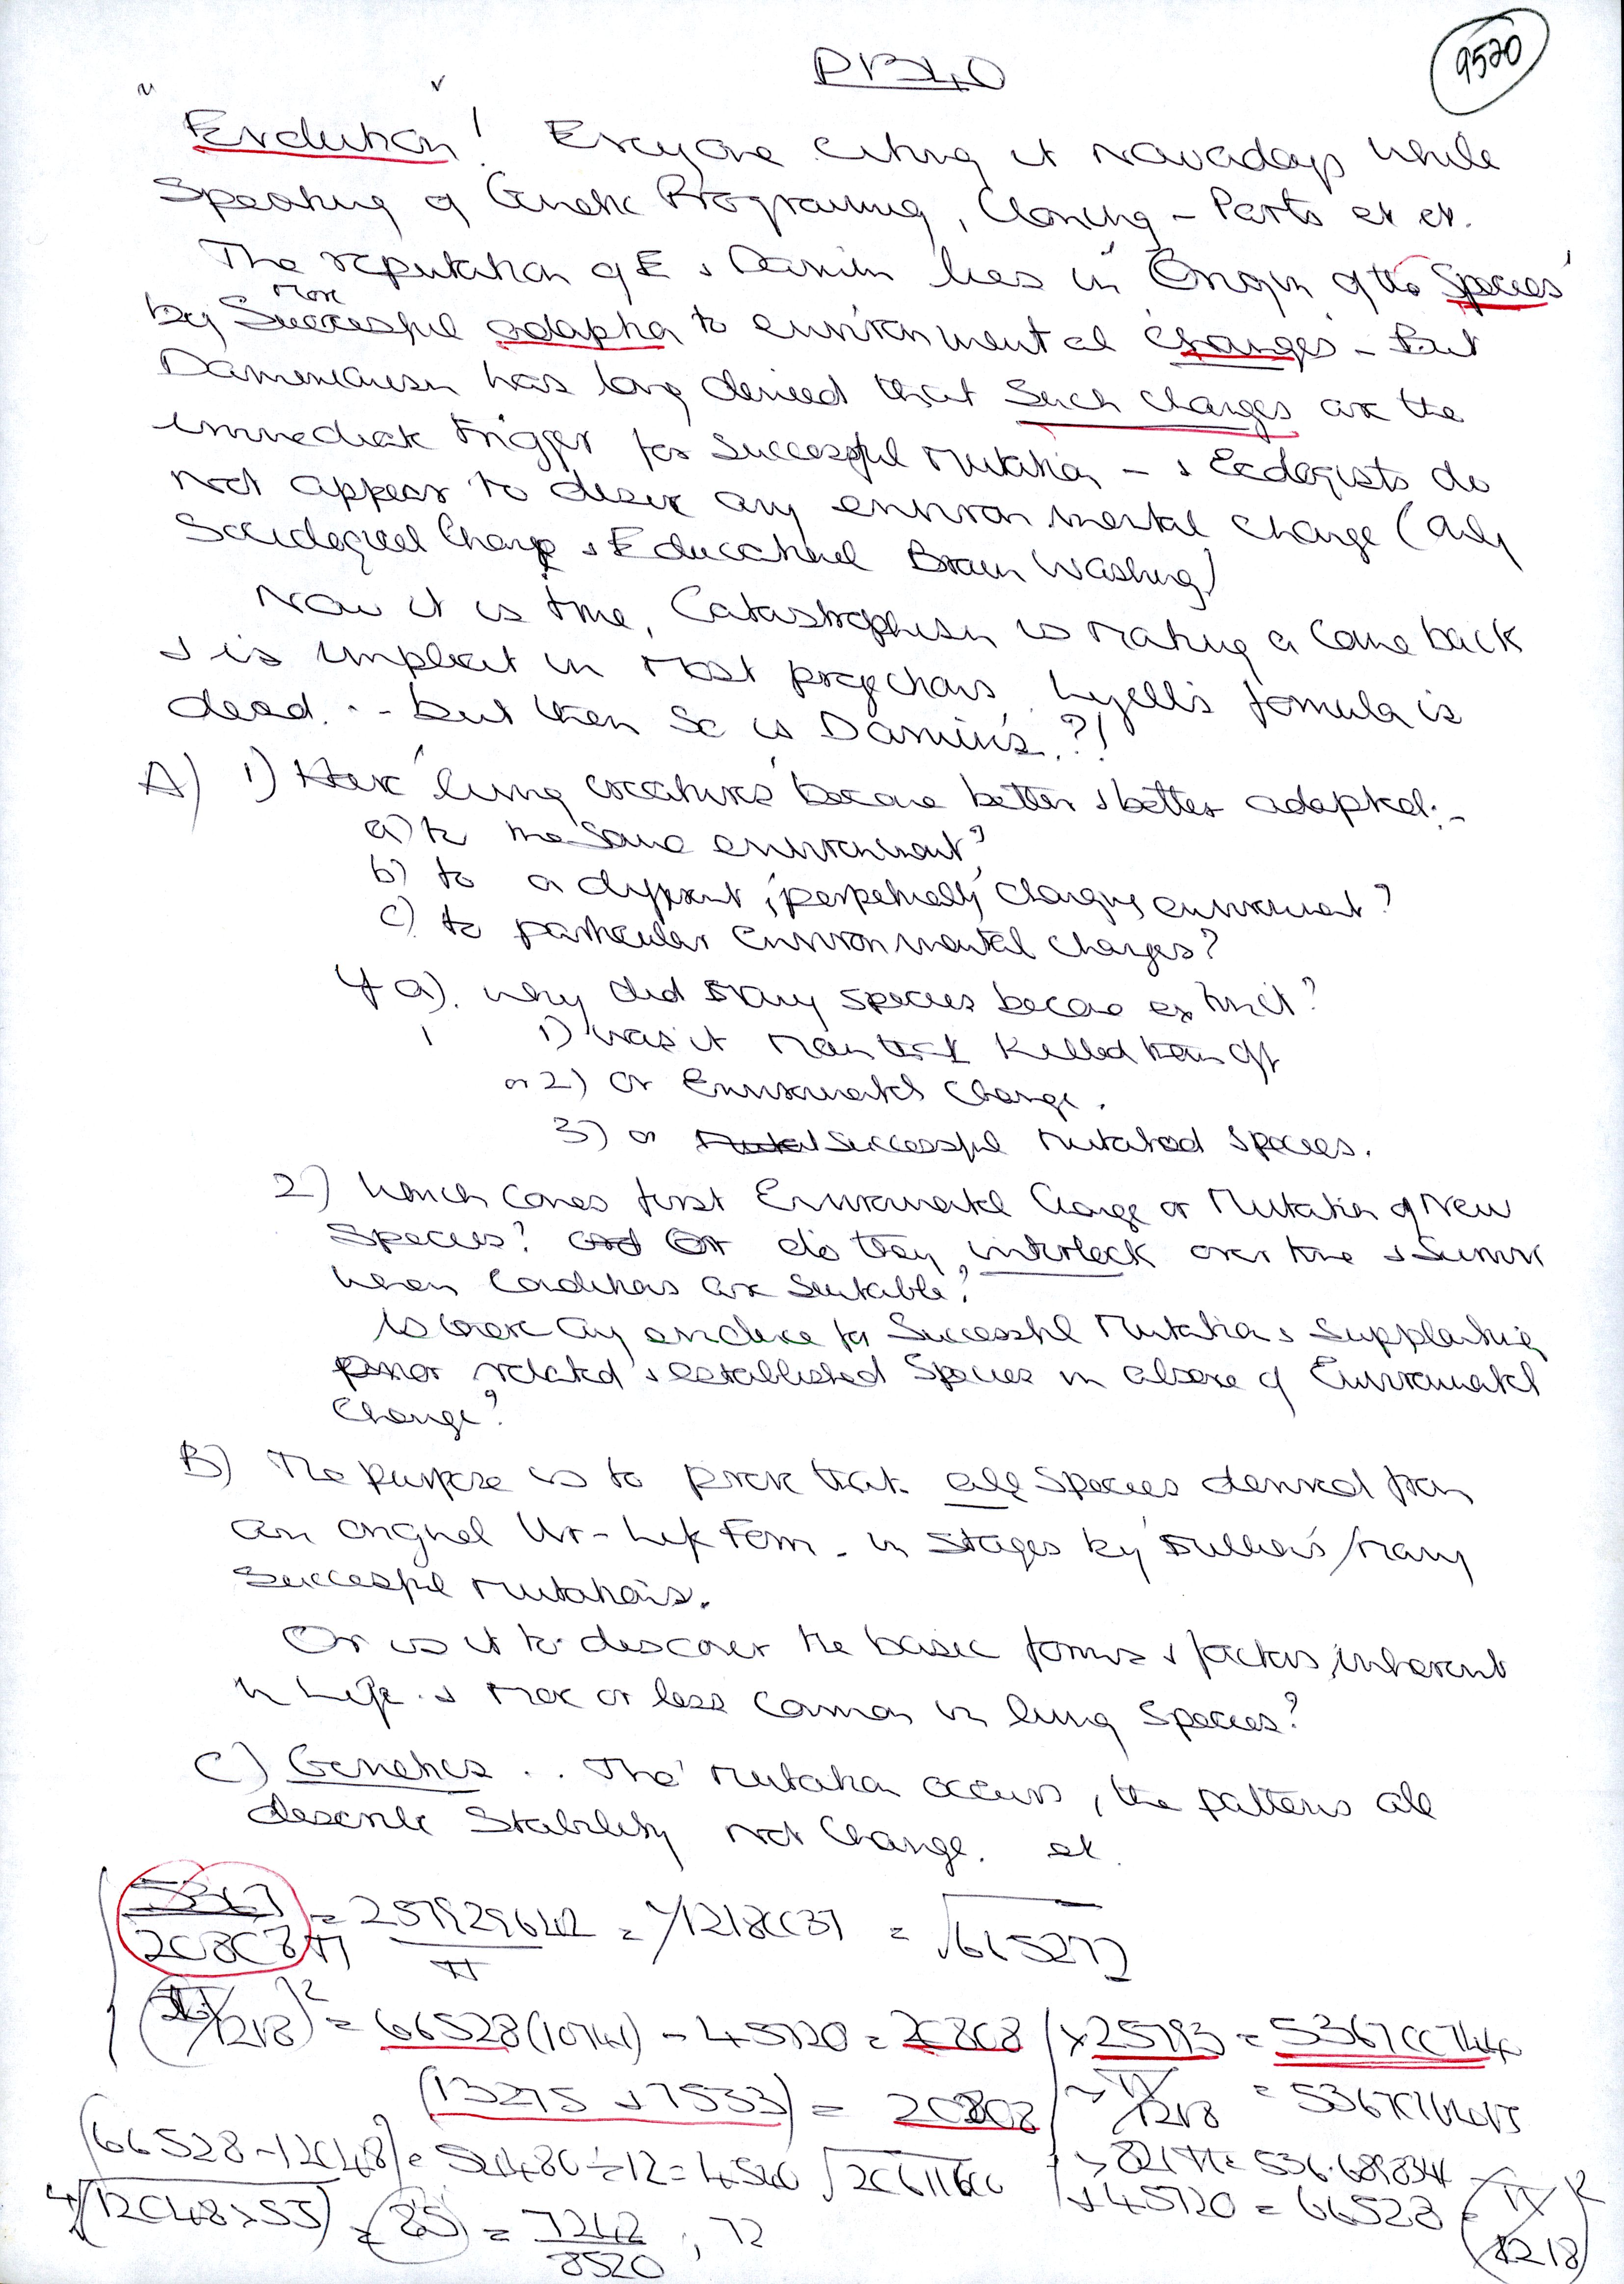 9520
Evolution! Everyone citing it nowadays while
Speaking of Genetic Programing, Cloning - Parts et et.
The reputation of E & Darwin lies in 'Origin of the Species'
by more Successful adaption to environmental changes - But
Darwinianism has long denied that such changes are the
immediate trigger for successful mutation - & Ecologists do
not appear to desire any environmental change (only
Sociological Change & Educational Brain Washing)
Now it is true, Catastrophism is making a come back
& is implicit in most projections. Lyell's formula is
dead. .. but then so is Darwin's.?!
A) 1) Have 'living creatures' become better & better adapted:-
a) to the same environment?
b) to a different, 'perpetually' changing environment?
c) to particular environmental changes?
If a). why did many species become extinct?
1) was it man that killed them off
or 2) or Enviromental change.
3) or successful mutated species.
2) Which comes first Enviromental Change or Mutation of New
Species? Or do they interlock over time & survive
when conditions are suitable?
Is there any evidence for successful mutations supplanting
prior related & established species in absence of Enviromental
change?
B) The purpose is to prove that all species derived from
an original Ur-Life Form - in stages by 'millions'/many
successful mutations.
Or is it to discover the basic forms & factors, inherent
in Life & more or less common in living species?
C) Genetics .. Tho' mutation occurs, the patterns all
describe Stability not Change. et.
5367/20808π = 257929642/π = 1/1218 = √665272
(π/1218)² = 66528 (10741) - 45720 = 20808 × 25793 = 536700744
(13275 + 7533) = 20808 π/1218
(66528 - 12048) = 54480 ÷ 12 = 4540 + 45720 = 66528 = (π/1218)²
∜(12048 × 55) = (85) = 7242/8520, 72